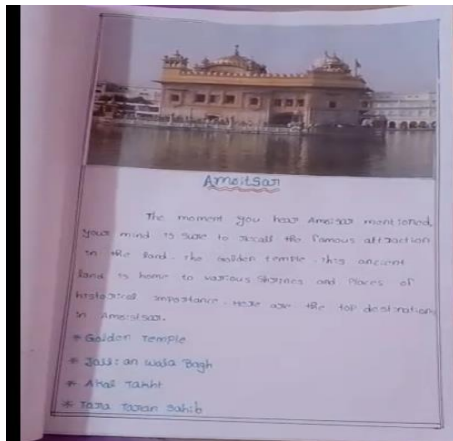 Amritsar
The moment you hear Amrisar mentioned,
your mind is sure to recall the famous attraction
in the land. The Golden temple. this ancient
land is home to various Shrines and Places of
historical importance. Here are the top destination
in Amristsar.
* Golden Temple
* Jallian wala Bagh
* Akal Takht
* Tara Taran Sahib